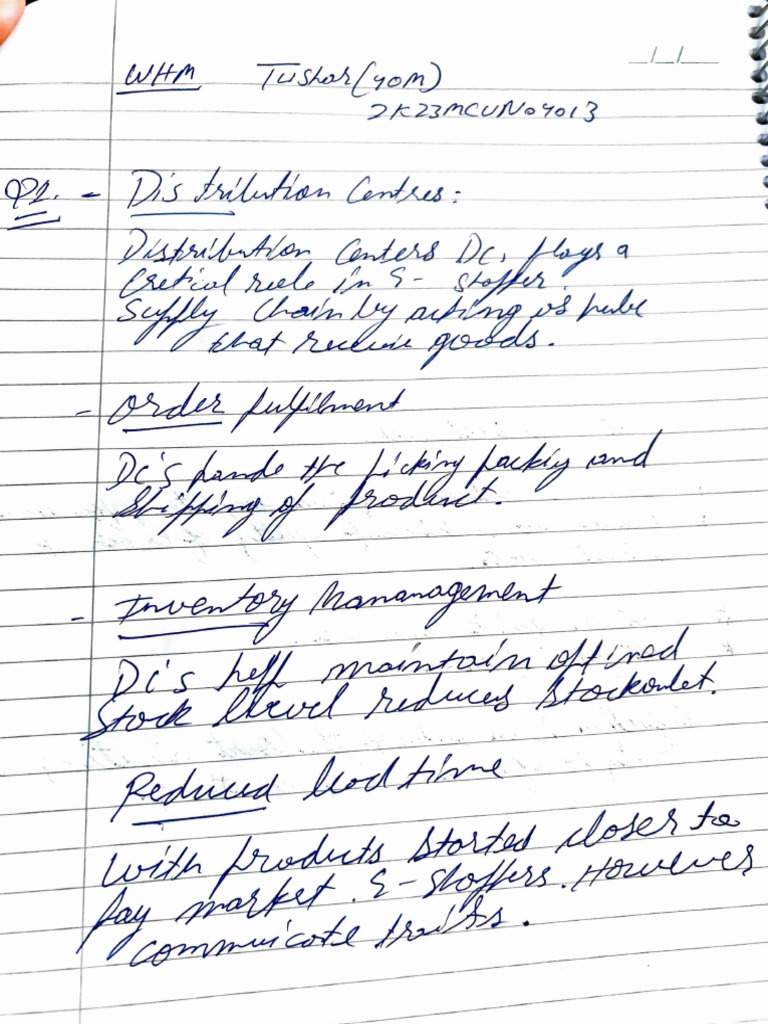 WHM Tushar (40M)
2K23MCUN04013
Q1. - Distribution Centres:
Distribution Centers DC, plays a
Cretical role in E- shopper.
Supply Chain by acting as hube
that receive goods.
- Order fulfilment
DC's hande the picking packig and
Shipping of product.
- Inventory Mananagement
DC's help maintain
Stock level reduces Stockoutet.
Reduced lead time
With products Started closer to
market. E-Shoppers. However
commuicate